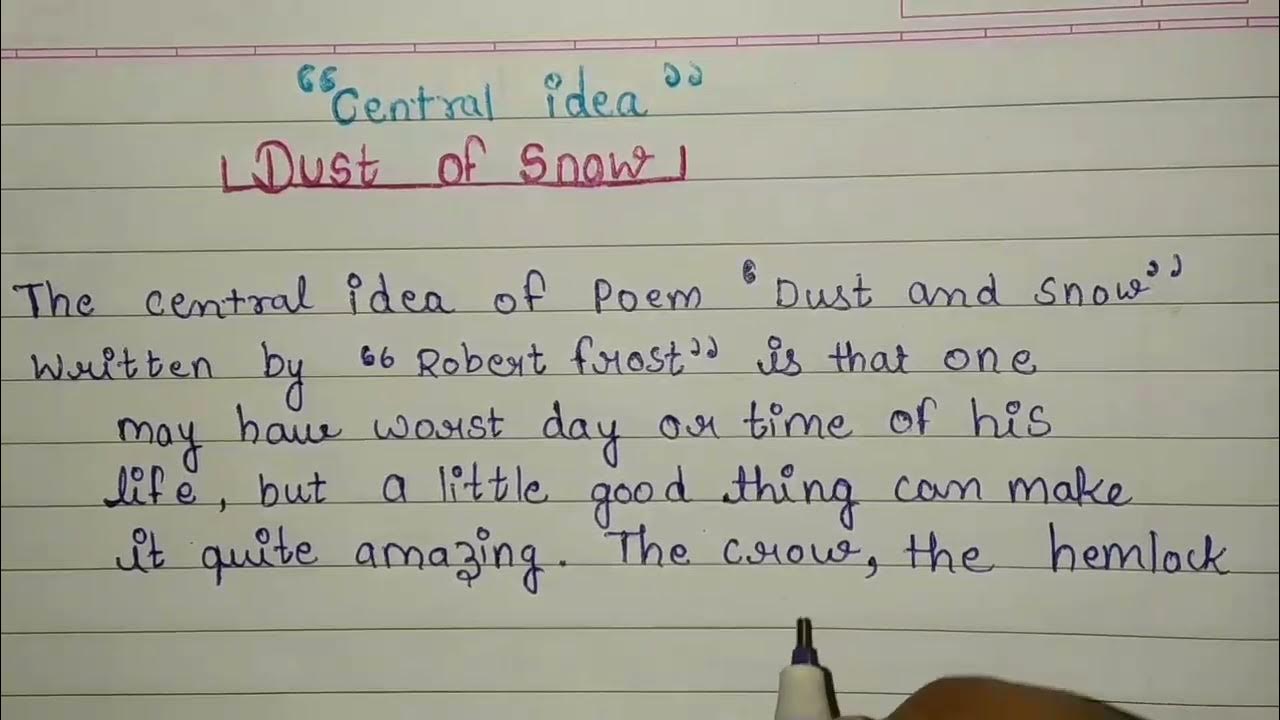 “Central idea”
Dust of Snow
The central idea of Poem ‘Dust and Snow”
Written by “Robert frost” is that one
may have worst day or time of his
life, but a little good thing can make
it quite amazing. The crow, the hemlock